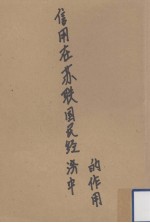 信用在苏联国民经济中
的作用